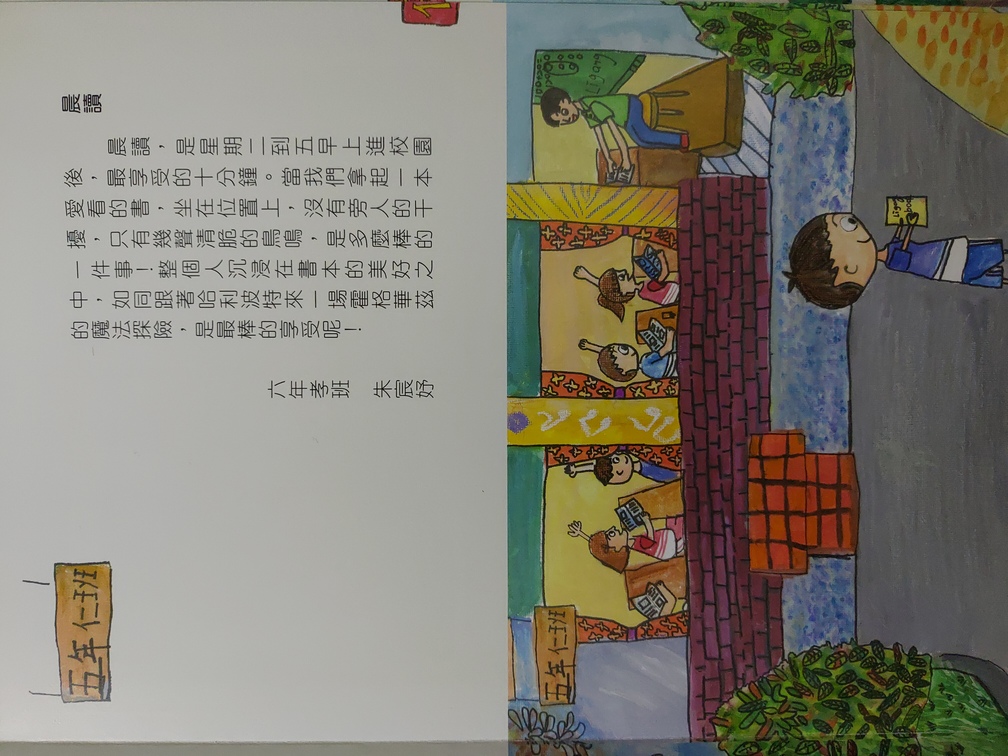 晨讀
晨讀，是星期二到五早上進校園
後，最享受的十分鐘。當我們拿起一本
愛看的書，坐在位置上，沒有旁人的干
擾，只有幾聲清脆的鳥鳴，是多麼棒的
一件事！整個人沉浸在書本的美好之
中，如同跟著哈利波特來一場霍格華茲
的魔法探險，是最棒的享受呢！
六年孝班 朱宸妤
五年仁班
五年仁班